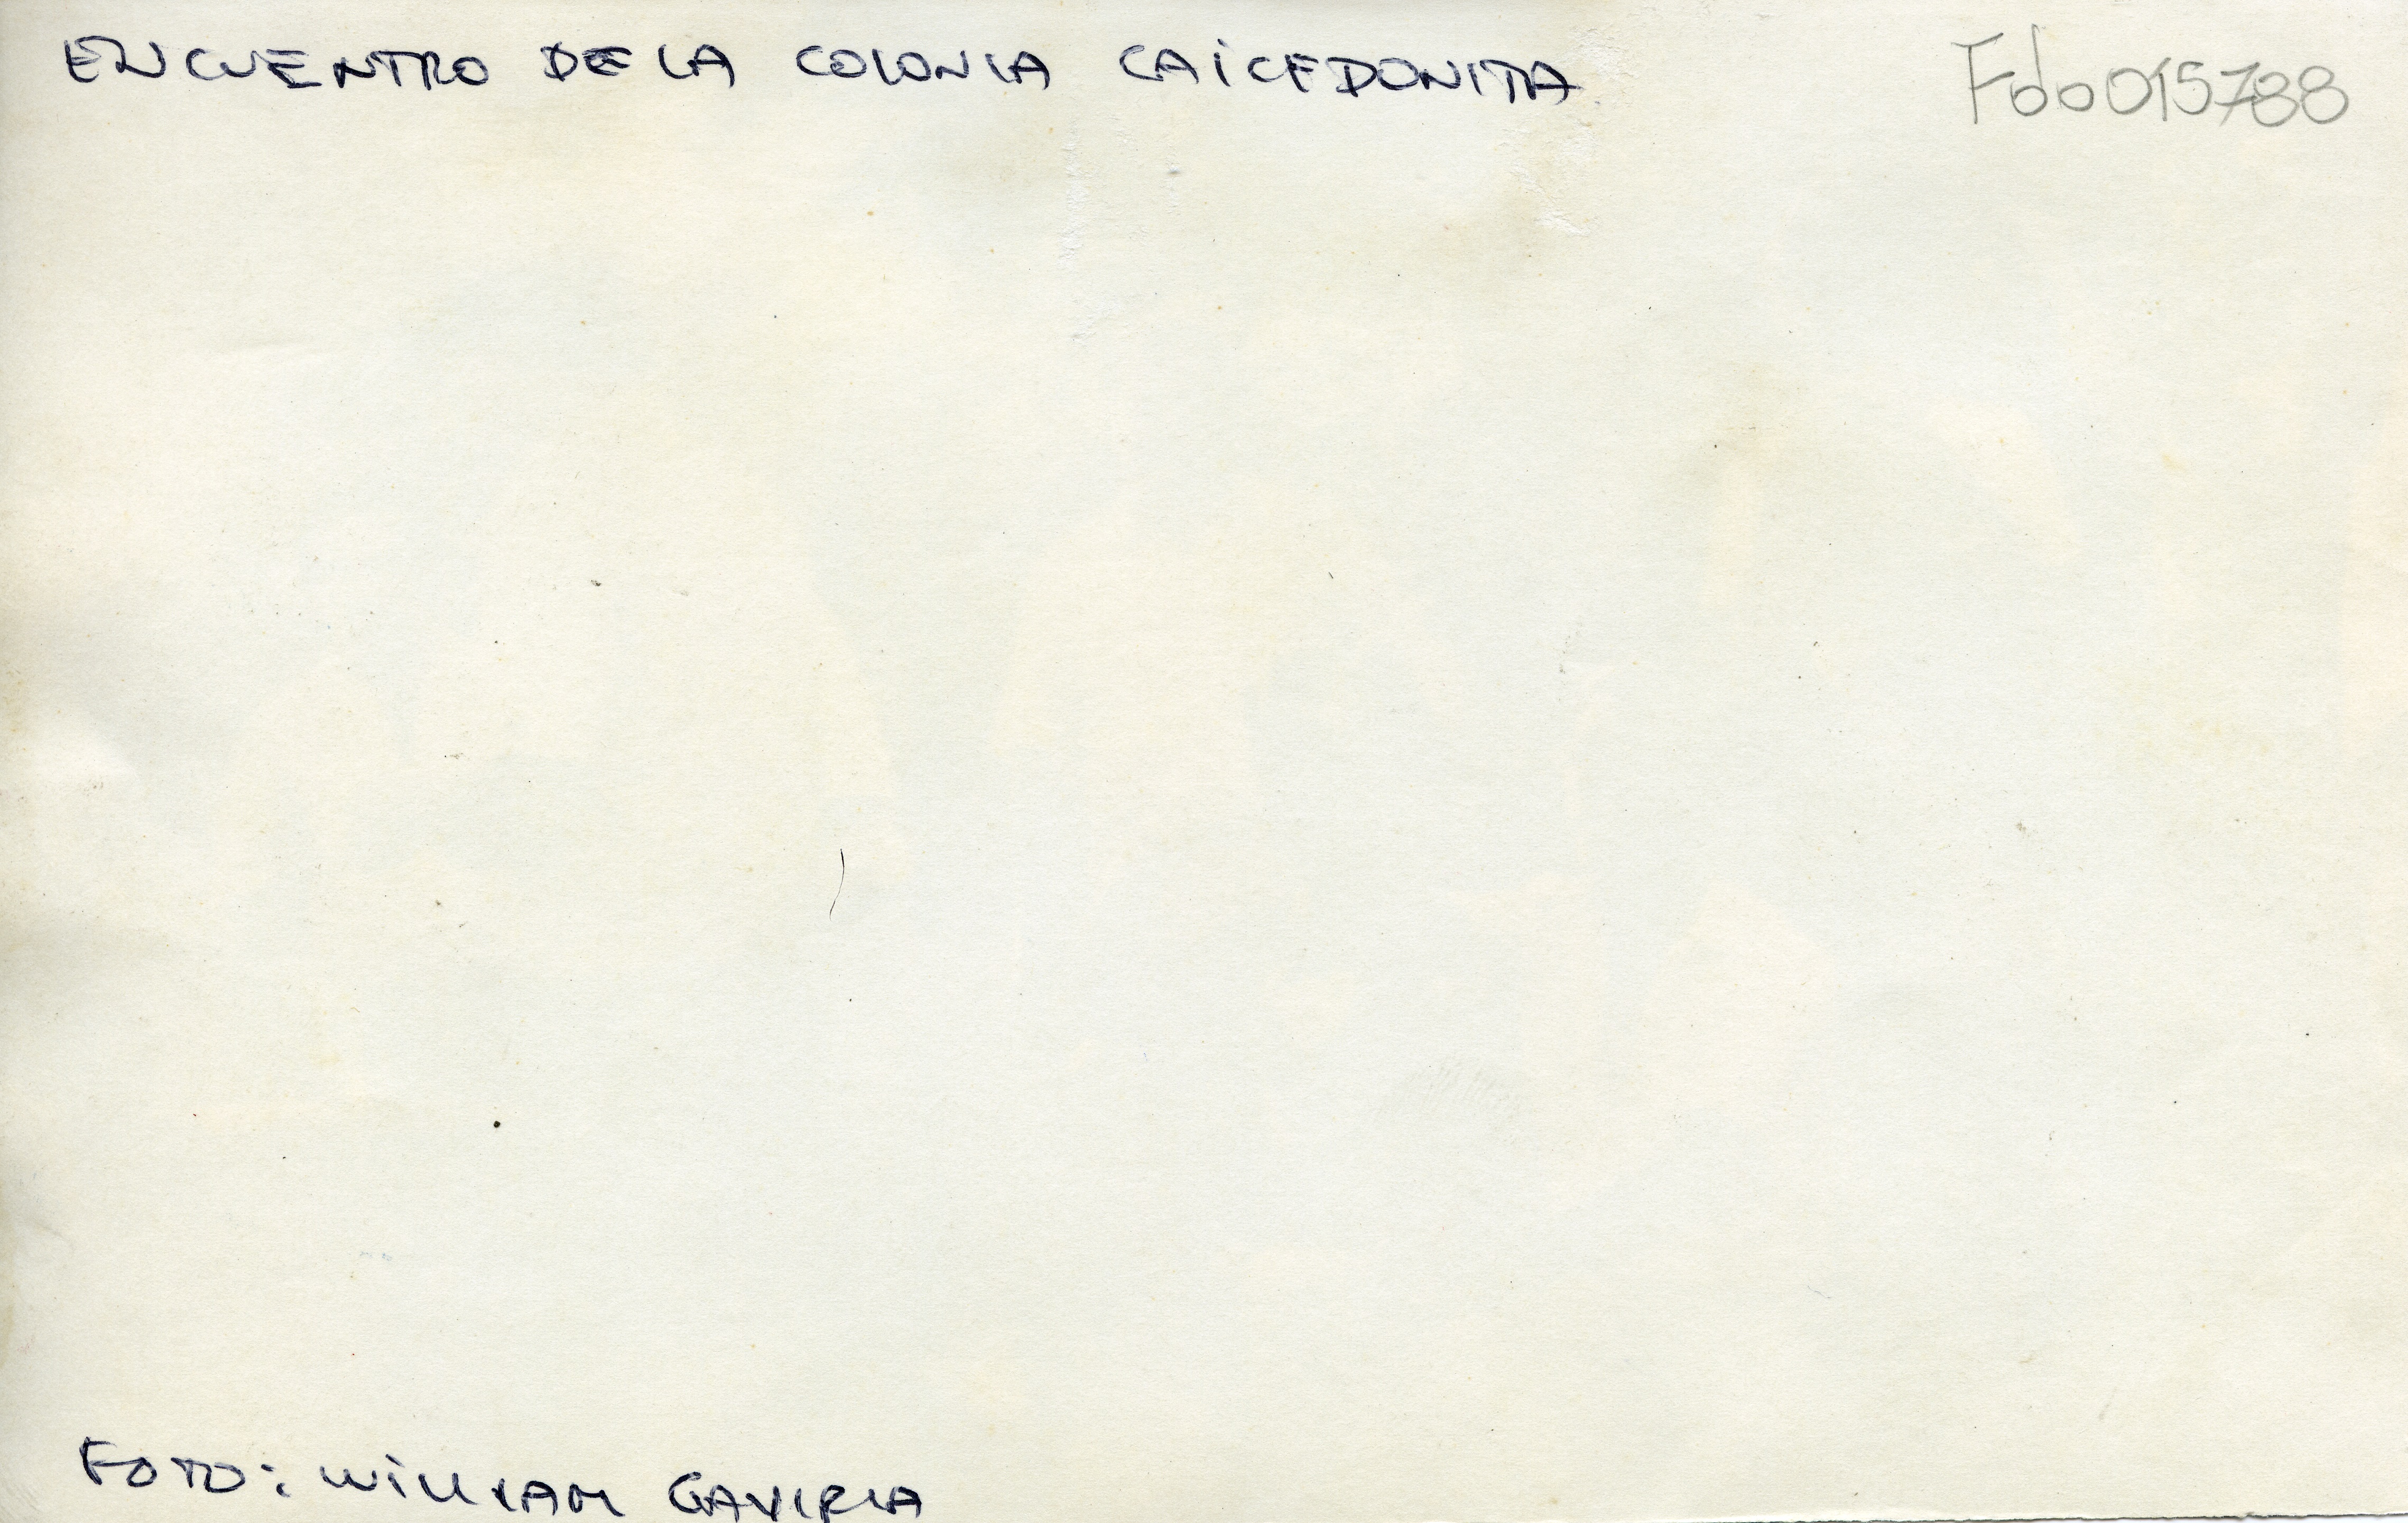 ENCUENTRO DE LA COLONIA CAICEDONITA
Fdo015788
FOTO: WILLIAM GAVIRIA